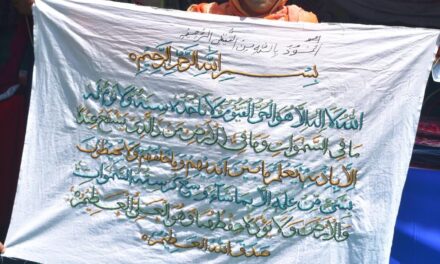 اعوذ بالله من الشيطن الرجيم
بسم الله الرحمن الرحيم
الله لا اله الا هو الحي القيوم لا تاخذه سنة ولا نوم له
ما في السموات وما في الارض من ذا الذي يشفع عنده
الا باذنه يعلم ما بين ايديهم وما خلفهم ولا يحيطون
بشيء من علمه الا بما شاء وسع كرسيه السموات
والارض ولا يؤده حفظهما وهو العلي العظيم
صدق الله العظيم